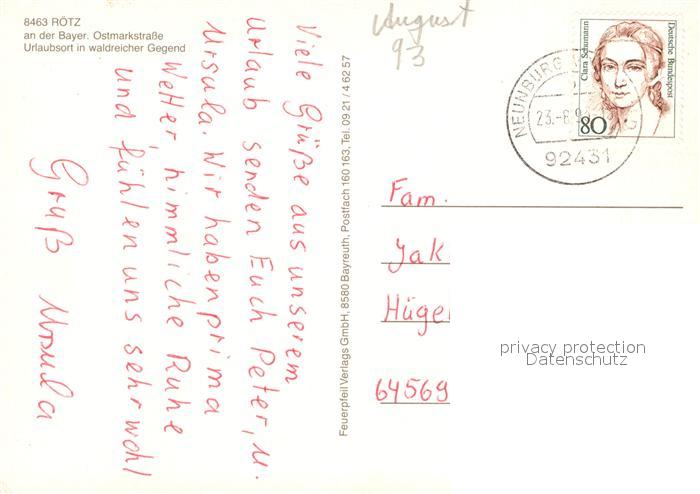 8463 RÖTZ
an der Bayer. Ostmarkstraße
Urlaubsort in waldreicher Gegend
Viele Grüße aus unserem
Urlaub senden Euch Peter, u.
Ursula. Wir haben prima
Wetter, himmliche Ruhe
und fühlen uns sehr wohl
Gruß Ursula
Feuerpfeil Verlags GmbH, 8580 Bayreuth, Postfach 160 163, Tel. 09 21 / 4 62 57
August
93
Clara Schumann
Deutsche Bundespost
80
NEUNBURG
23.-8.9
92431
Fam.
Jak
Hügel
64569
privacy protection
Datenschutz